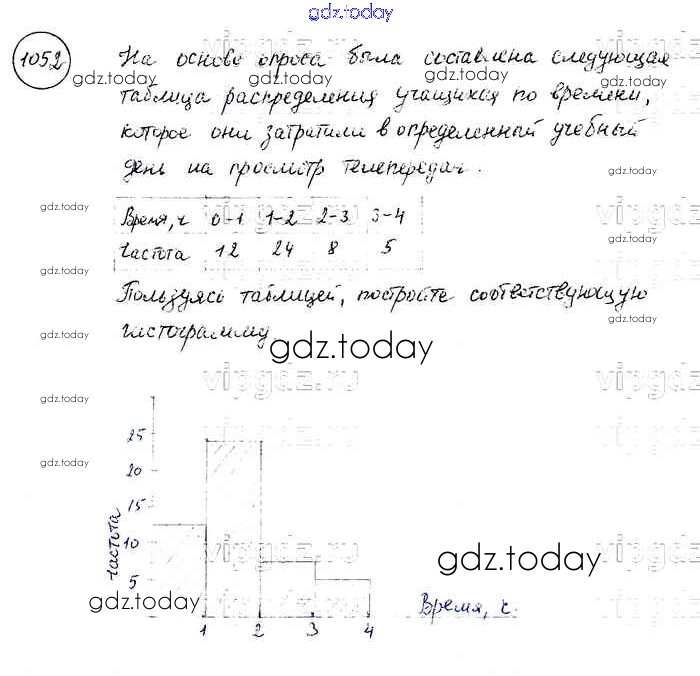 gdz.today
1052 На основе опроса была составлена следующая
gdz.today gdz.today gdz.today gdz.today
таблица распределения учащихся по времени,
которое они затратили в определенный учебный
день на просмотр телепередач.
gdz.today gdz.today
gdz.today vipgdz.ru vipgdz
Время, ч 0-1 1-2 2-3 3-4
Частота 12 24 8 5
gdz.today
Пользуясь таблицей, постройте соответствующую
gdz.today
гистограмму.
gdz.today
vipgdz.ru vipgdz
gdz.today
25
gdz.today
20
15
частота
10
vipgdz.ru vipgdz
gdz.today
5
gdz.today
Время, ч.
1 2 3 4